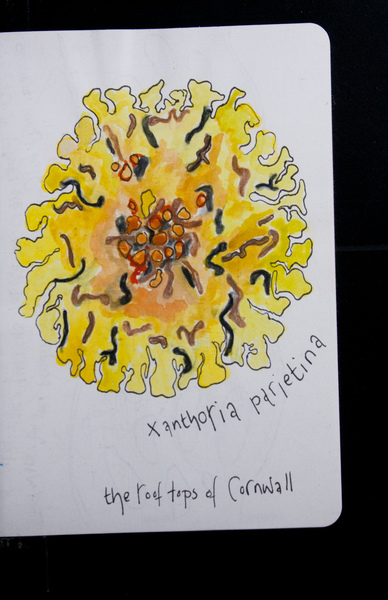 xanthoria parietina
the roof tops of Cornwall